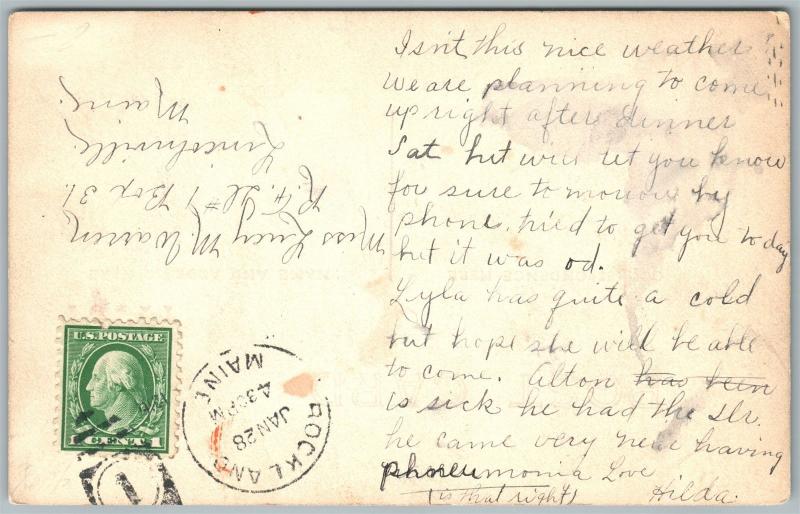 Isn't this nice weather?
We are planning to come
up right after dinner
Sat but will let you know
for sure to morrow by
phone, tried to get you to day
but it was od.
Lyla has quite a cold
but hope she will be able
to come. Alton has been
is sick he had the Dr.
he came very near having
phneumonia Love
(is that right) Hilda.
Miss Lucy M. Warren
R.F.D. #1 Box 31.
Lincolnville
Maine.
U.S. POSTAGE
1 CENT 1
ROCKLAND
JAN 28
430 PM
MAINE
1